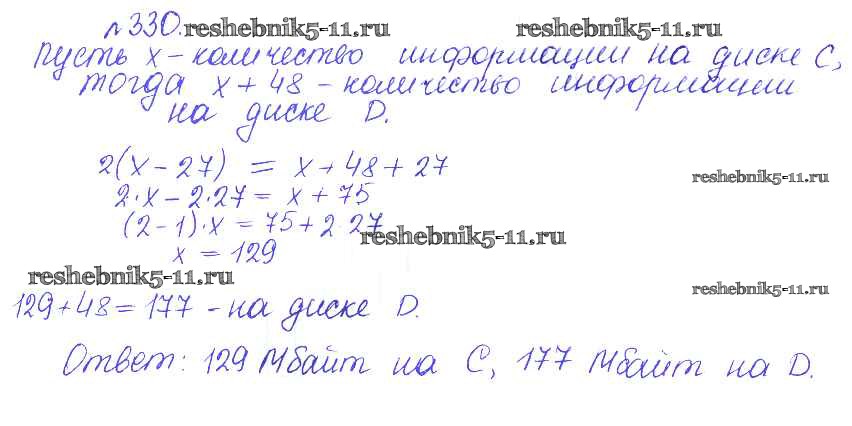 №330. reshebnik5-11.ru reshebnik5-11.ru
Пусть x - количество информации на диске C,
тогда x + 48 - количество информации
на диске D.
2(x - 27) = x + 48 + 27
reshebnik5-11.ru
2·x - 2·27 = x + 75
(2-1)·x = 75 + 2·27
reshebnik5-11.ru
x = 129
reshebnik5-11.ru
reshebnik5-11.ru
129 + 48 = 177 - на диске D.
Ответ: 129 Мбайт на C, 177 Мбайт на D.